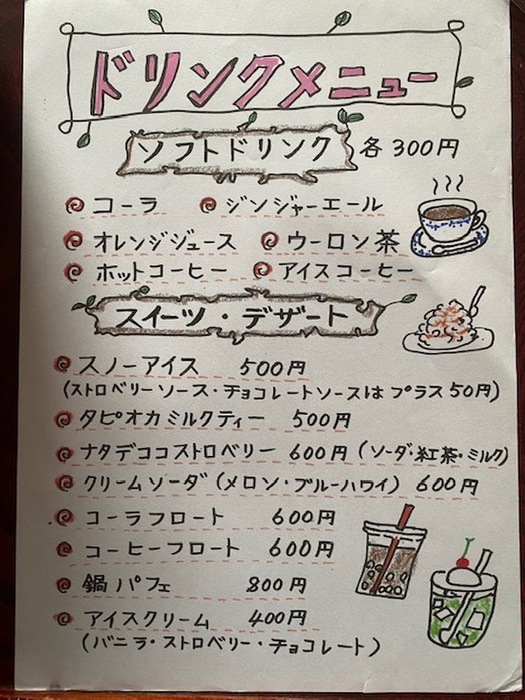 ドリンクメニュー
ソフトドリンク 各300円
コーラ ジンジャーエール
オレンジジュース ウーロン茶
ホットコーヒー アイスコーヒー
スイーツ・デザート
スノーアイス 500円
(ストロベリーソース・チョコレートソースはプラス50円)
タピオカミルクティー 500円
ナタデココストロベリー 600円(ソーダ・紅茶・ミルク)
クリームソーダ(メロン・ブルーハワイ) 600円
コーラフロート 600円
コーヒーフロート 600円
鍋パフェ 800円
アイスクリーム 400円
(バニラ・ストロベリー・チョコレート)